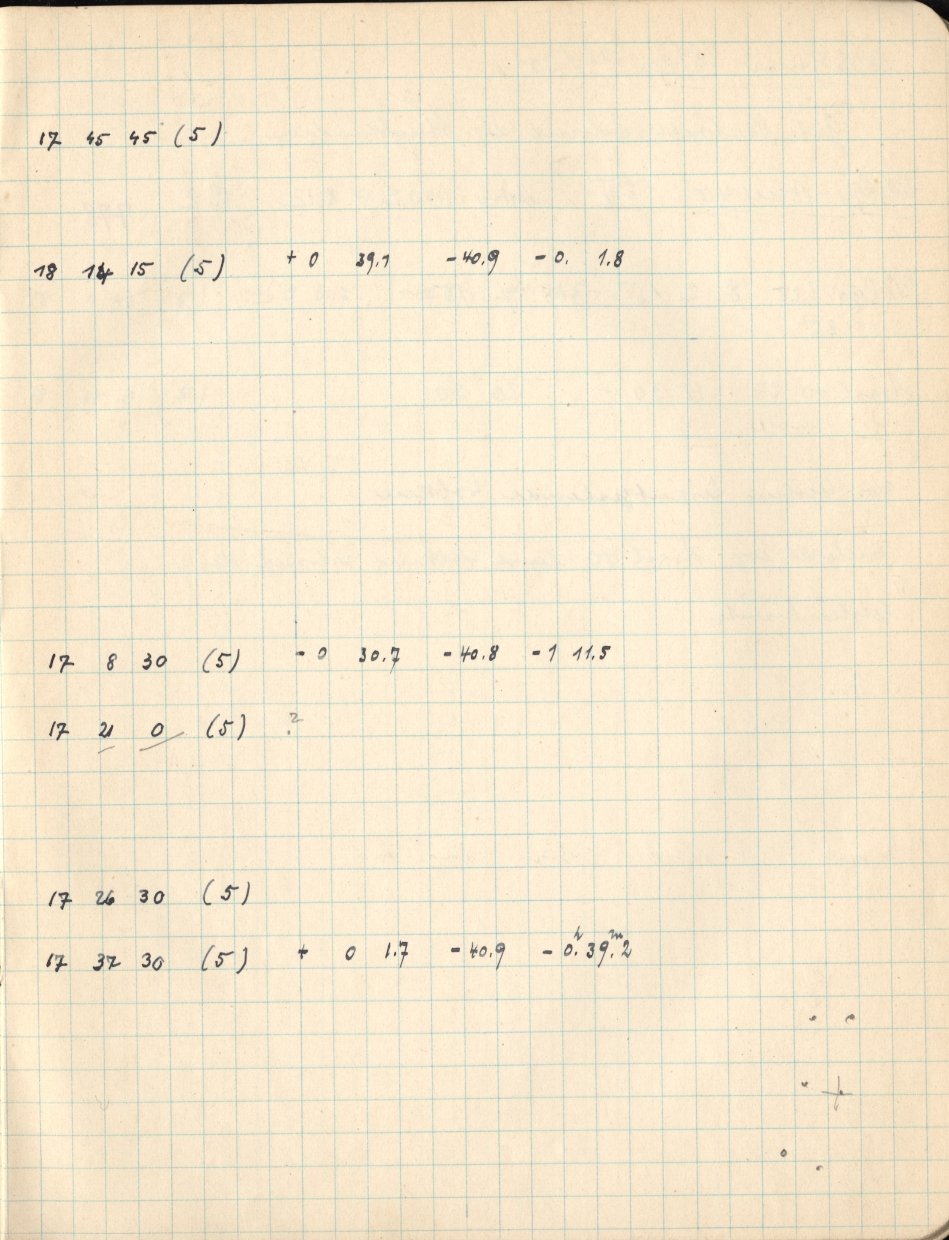 17 45 45 (5)
18 14 15 (5) + 0 39.1 - 40.9 - 0. 1.8
17 8 30 (5) - 0 30.7 - 40.8 - 1 11.5
17 21 0 (5) ?
17 26 30 (5)
17 37 30 (5) + 0 1.7 - 40.9 - 0.ʰ 39.ᵐ2